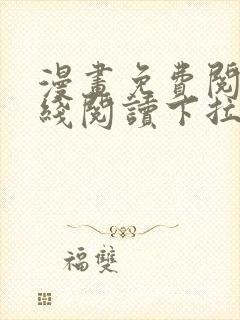 漫畫免費閱
綫閱讀下拉
福雙